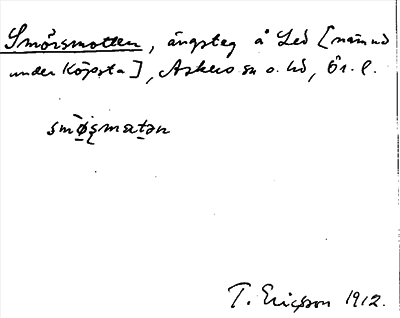 Smörsmotten, ängsteg å Led [nämnd
under Köpsta], Askers sn o. hd, Ör. l.
smø̀ʂmɑtən
T. Ericsson 1912.